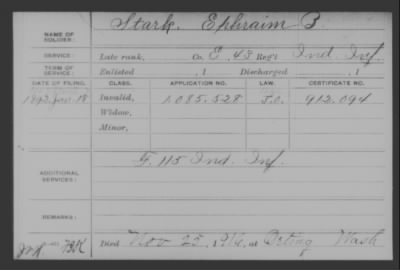 NAME OF SOLDIER: Stark, Ephraim B.
SERVICE: Late rank, Co. E, 43 Reg't Ind. Inf.
TERM OF SERVICE: Enlisted , 1 Discharged , 1
DATE OF FILING. CLASS. APPLICATION NO. LAW. CERTIFICATE NO.
1892 Jan. 18 Invalid, 1085.528 912.094
Widow,
Minor,
ADDITIONAL SERVICES: F. 115 Ind. Inf.
REMARKS:
Died Nov 25, 191 , at Orting Wash